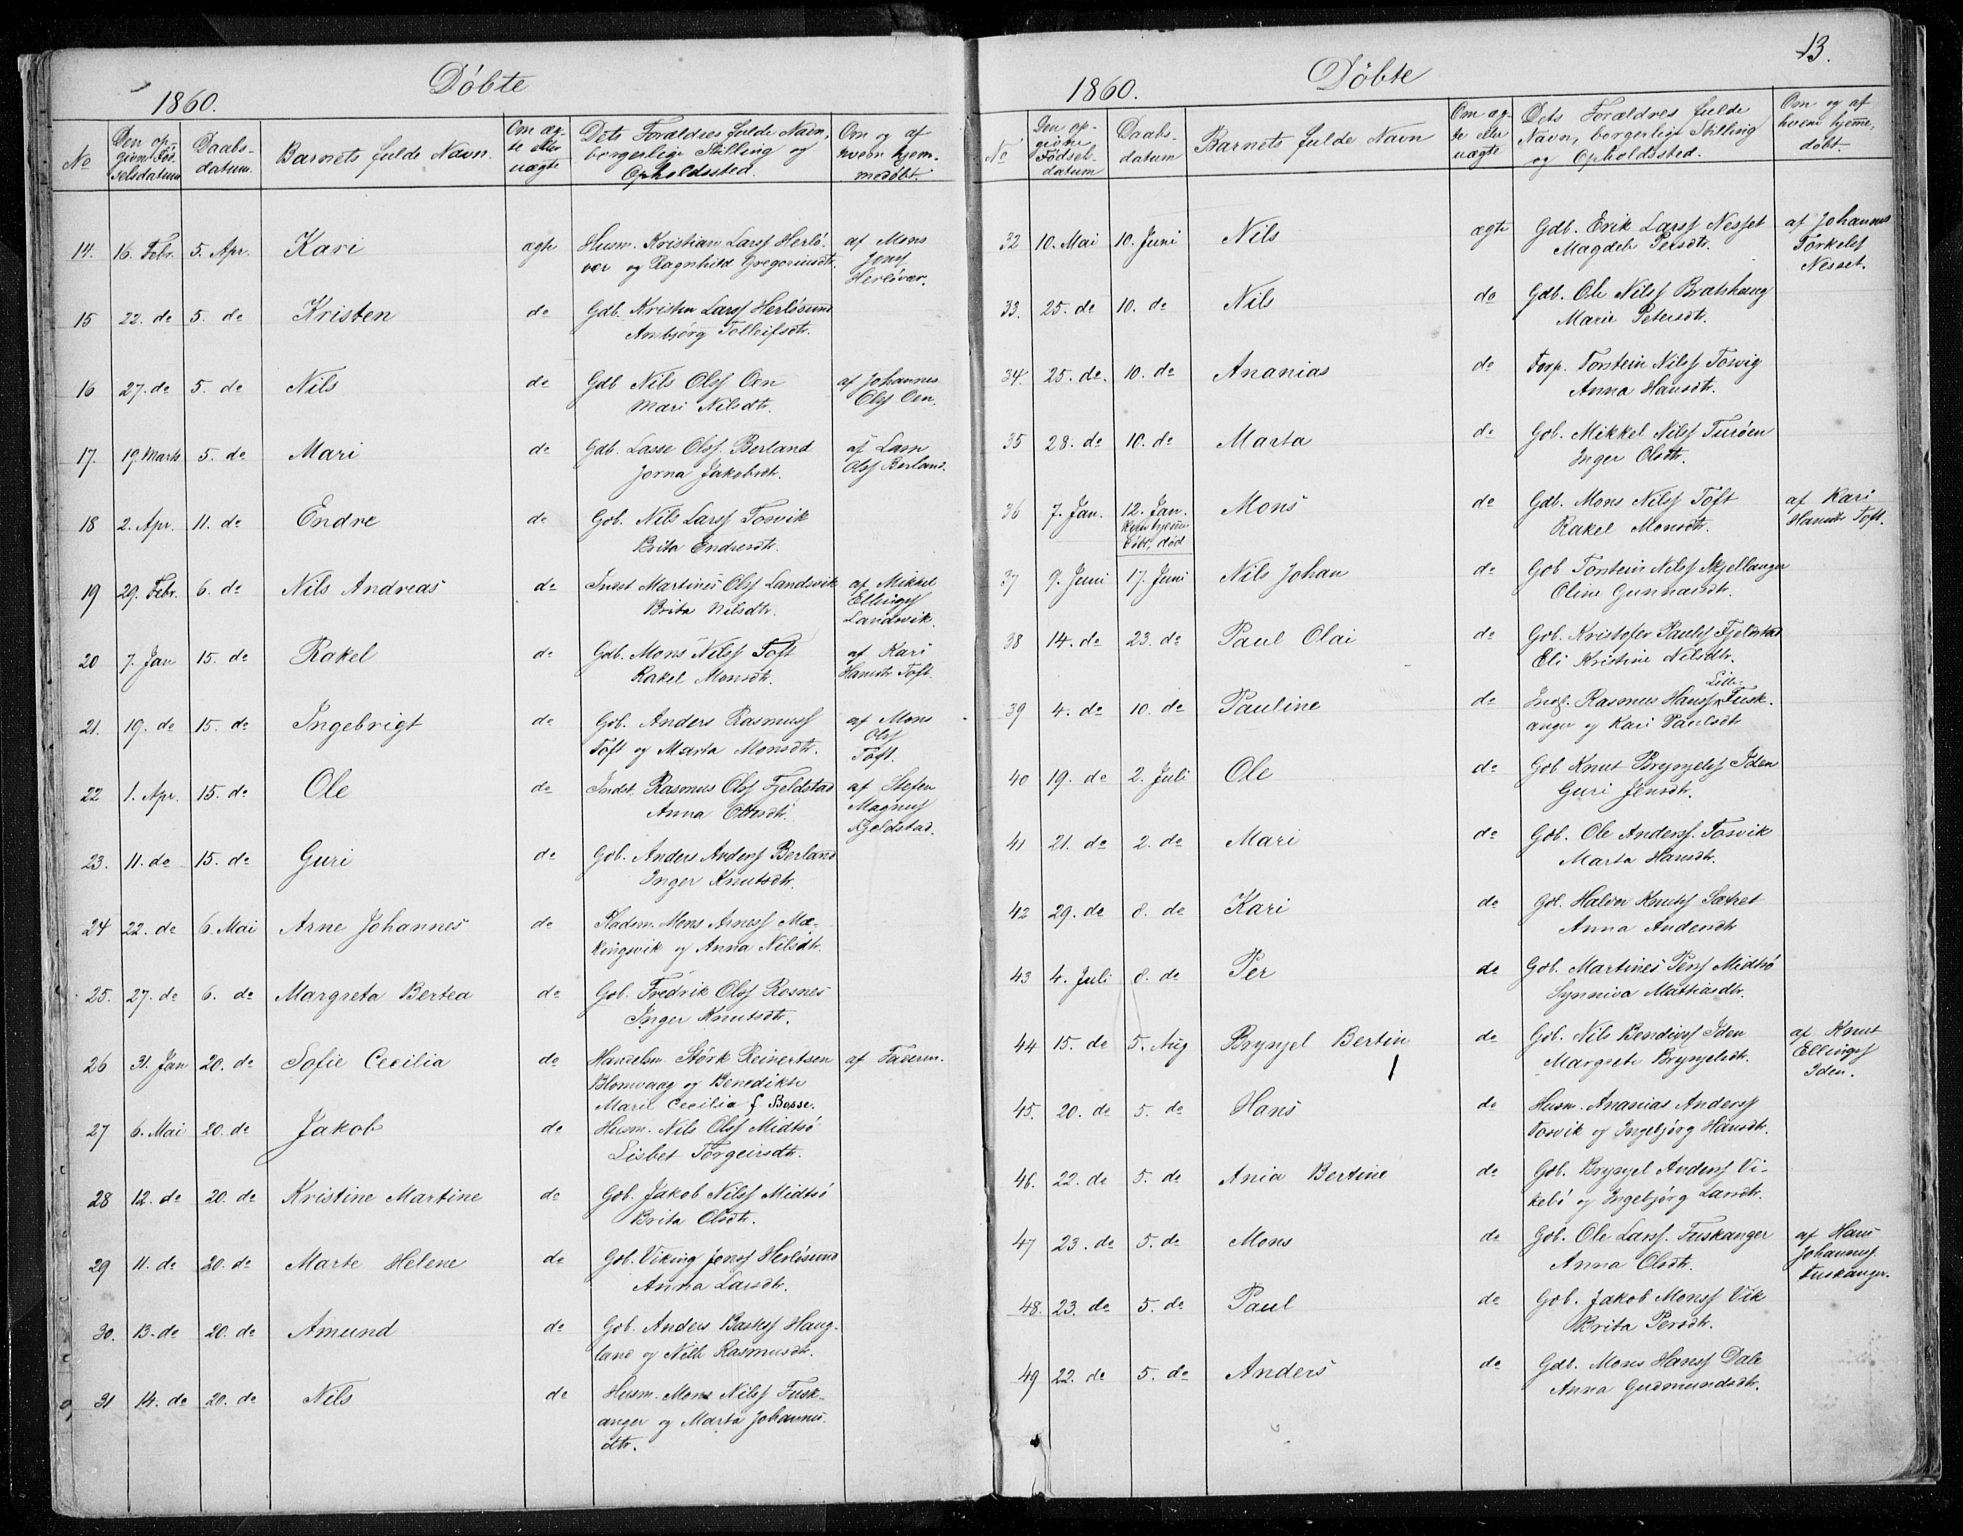 1860. Döbte
No
Den opgivne Fødselsdatum
Daabsdatum.
Barnets fulde Navn.
Om ægte eller uægte
Dets Forældres fulde Navn, borgerlige Stilling og Opholdssted.
Om og af hvem hjemmedöbt.
14. 16. Febr. 5. Apr. Kari ægte Husm. Kristian Larss Herlö- af Mons
vær og Ragnhild Gregoriusdtr. Jonss
Herlövær.
15 22. do 5. do Kristen do Gdb. Kristen Larss Herlösund
Ambjörg Tolleifsdtr.
16 27. do 5. do Nils do Gdb Nils Olss Oen af Johannes
Mari Nilsdtr. Olss Oen.
17. 19. Marts 5. do Mari do Gdb. Lasse Olss. Berland af Lars
Jorna Jakobsdtr. Olss Berland.
18 2. Apr. 11. do Endre do Gdb. Nils Larss Tosvik
Brita Endresdtr.
19 29. Febr. 6. do Nils Andreas do Indst Martinus Olss Landsvik af Mikkel
Brita Nilsdtr. Ellingss
Landsvik.
20 7. Jan 15. do Rakel do Gdb. Mons Nilss Toft af Kari
Rakel Monsdtr. Hansdtr Toft.
21. 19. do 15. do Ingebrigt do Gdb. Anders Rasmuss af Mons
Toft og Marta Monsdtr. Olss
Toft.
22 1. Apr. 15. do Ole do Indst. Rasmus Olss Fjeldstad af Stefen
Anna Ottesdtr. Magnuss
Fjeldstad.
23. 11. do 15. do Guri do Gdb. Anders Anderss Berland
Inger Knutsdtr.
24 22. do 6. Mai Arne Johannes do Pladsm. Mons Arness Mæ-
kingsvik og Anna Nilsdtr.
25. 27. do 6. do Margreta Bertea do Gdb. Fredrik Olss Rosnes
Inger Knutsdtr.
26 31. Jan 20. do Sofie Cecilia do Handelsm. Störk Reinertsen af Faderen.
Blomvaag og Benedikte
Marie Cecilia f. Basse.
27 6. Mai 20. do Jakob do Husm. Nils Olss Midtsö
Lisbet Torgeirsdtr.
28 12. do 20. do Kristine Martine do Gdb. Jakob Nilss Midtsö
Brita Olsdtr.
29 11. do 20. do Marte Helene do Gdb. Viking Jenss Herlösund
Anna Larsdtr.
30. 13. do 20. do Amund do Gdb. Anders Haug-
land og Nille Rasmusdtr.
31 14. do 20. do Nils do Husm. Mons Nilss Tusk-
anger og Marta Johannes-
dtr.
13.
1860. Döbte
No
Den opgivne Fødselsdatum
Daabsdatum
Barnets fulde Navn
Om ægte eller uægte
Dets Forældres fulde Navn, borgerlige Stilling og Opholdssted.
Om og af hvem hjemmedöbt.
32 10. Mai 10. Juni Nils ægte Gdb. Erik Larss Nesset af Johannes
Magdele Persdtr. Torkelss
Nesset.
33. 25. do 10. do Nils do Gdb. Ole Nilss Bratshaug
Marie Petersdtr.
34. 25. do. 10. do Ananias do Torp. Torstein Nilss Tosvig
Anna Hansdtr.
35 28. do 10. do Marta do Gdb. Mikkel Nilss Turöen
Inger Olsdtr.
36 7. Jan. 12. Jan. Mons do Gdb. Mons Nilss Toft af Kari
kun hjemme- Rakel Monsdtr. Hansdtr Toft.
döbt, död
37 9. Juni 17. Juni Nils Johan do Gdb Torstein Nilss Skjellanger
Oline Gunnarsdtr.
38 14. do 23. do Paul Olai do Gdb. Kristofer Paulss Fjeldstad
Eli Kristine Nilsdtr.
39 4. do 10. do Pauline do Indst. Rasmus Hanss Lille-Tusk-
anger og Kari Paulsdtr
40 19. do 2. Juli Ole do Gdb Knut Brynjelss Iden
Guri Jensdtr.
41 21. do 2. do Mari do Gdb. Ole Anderss. Tosvik
Marta Hansdtr.
42 29. do 8. do Kari do Gdb. Halvor Knutss Sætret
Anna Andersdtr
43 4. Juli 8. do Per do Gdb. Martines Perss Midtsö
Synniva Mattiasdtr.
44 15. do 5. Aug Brynjel Bertin do Gdb. Nils Bendixss Iden af Knut
Margrete Brynjelsdtr. Ellingss
Iden.
45. 20. do 5. do Hans do Husm. Ananias Anderss
Tosvik og Ingebjörg Hansdtr.
46. 22. do 5. do Ania Bertine do Gdb. Brynjel Anderss Vi-
kebö og Ingebjörg Larsdtr.
47 23. do 5. do Mons do Gdb. Ole Larss. Tuskanger af Hans
Anna Olsdtr. Johanness
Tuskanger.
48. 23. do 5. do Paul do Gdb. Jakob Monss Vik
Brita Persdtr.
49 22. do 5. do Anders do Gdb. Mons Hanss Dale
Anna Gudmundsdtr.